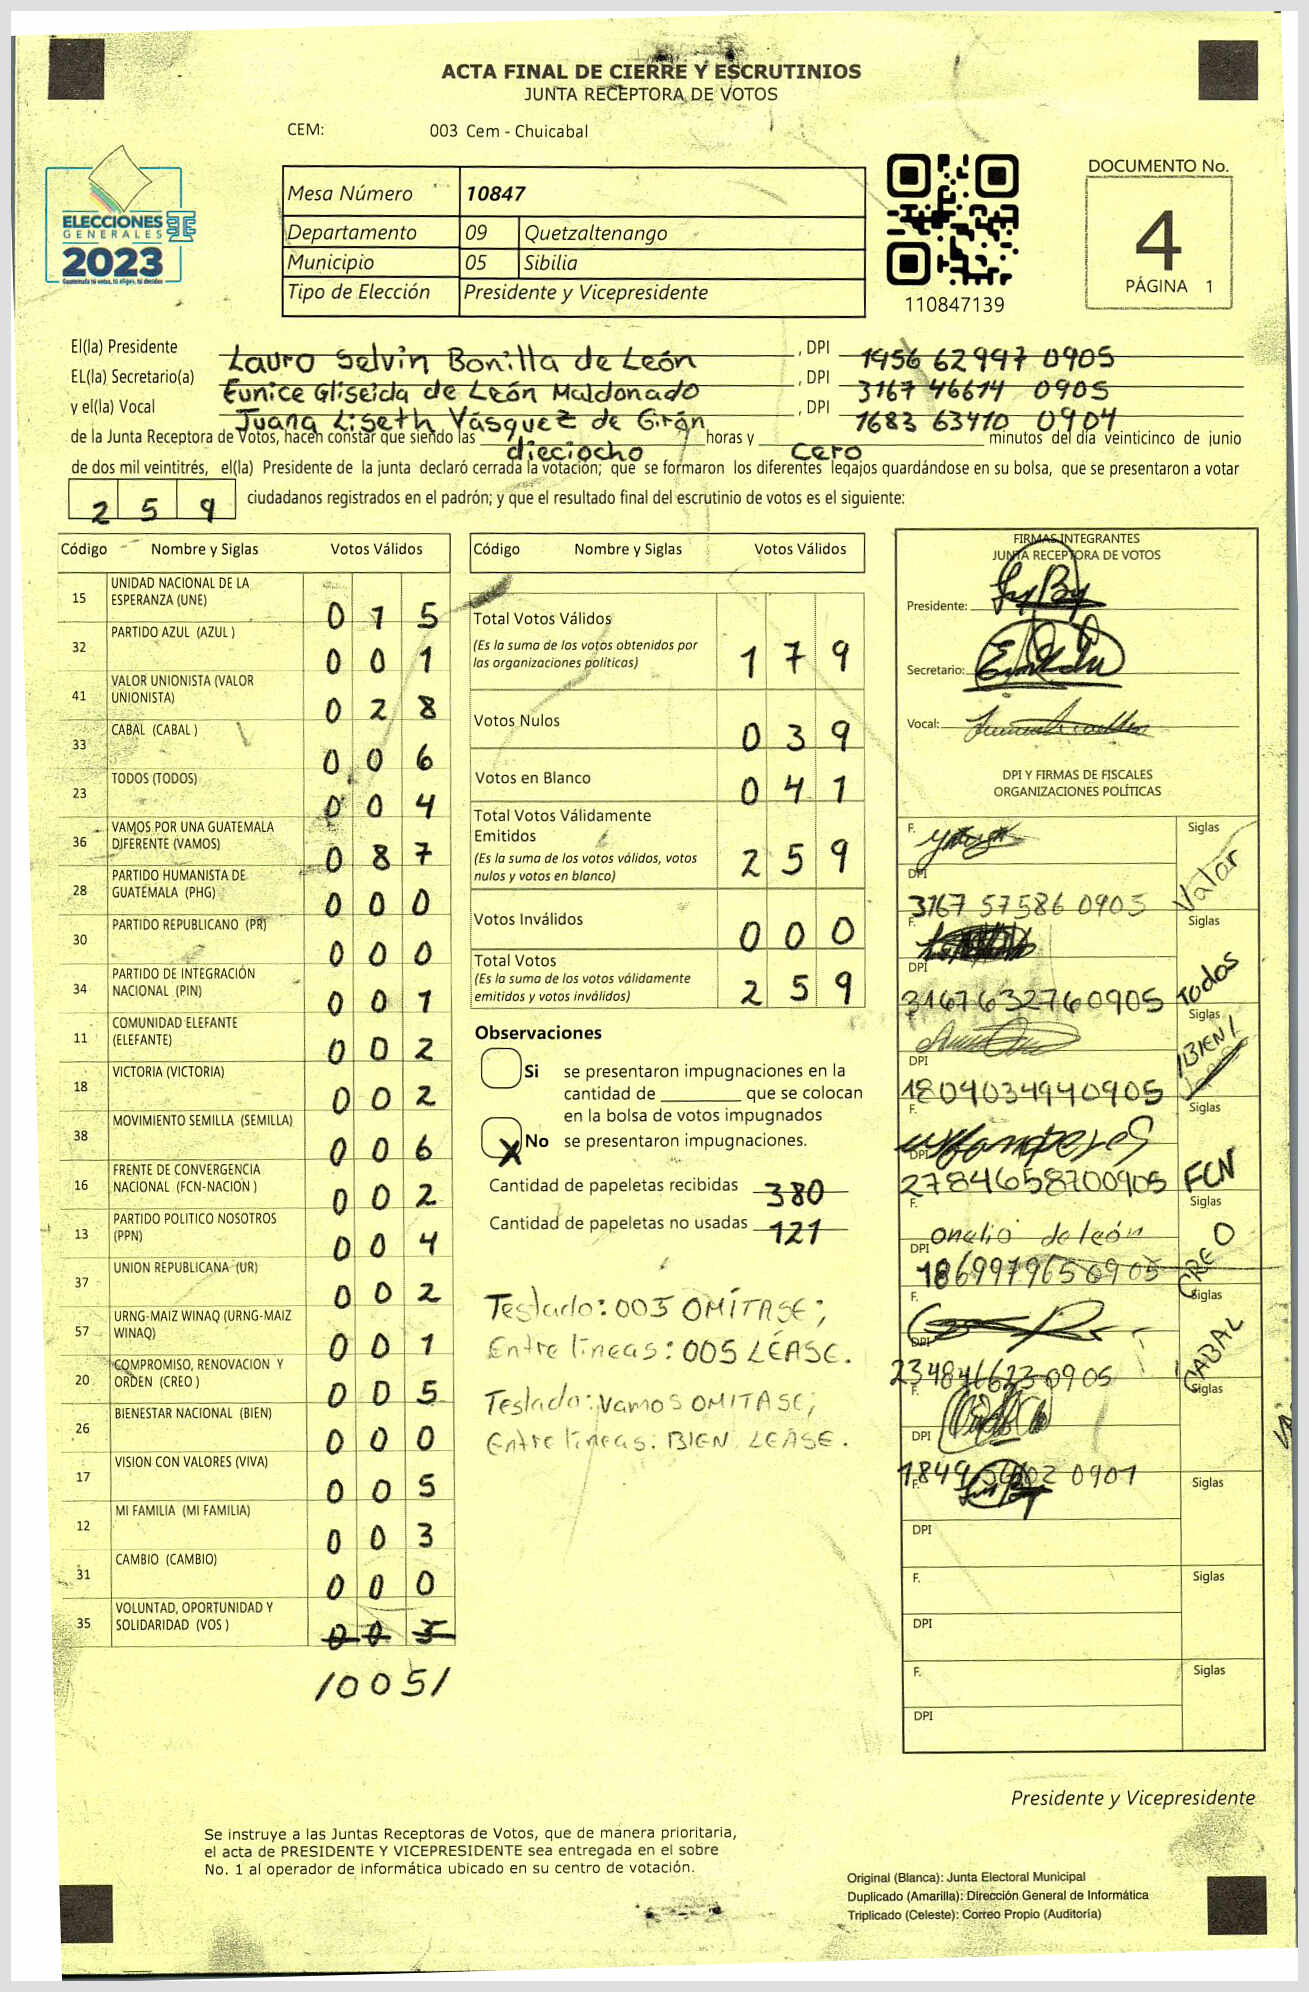 ACTA FINAL DE CIERRE Y ESCRUTINIOS
JUNTA RECEPTORA DE VOTOS
CEM: 003 Cem - Chuicabal
ELECCIONES
GENERALES
2023
Guatemala tú votas, tú eliges, tú decides
Mesa Número 10847
Departamento 09 Quetzaltenango
Municipio 05 Sibilia
Tipo de Elección Presidente y Vicepresidente
110847139
DOCUMENTO No.
4
PÁGINA 1
El(la) Presidente Lauro Selvin Bonilla de León , DPI 1956 62997 0905
EL(la) Secretario(a) Eunice Gliseida de León Maldonado , DPI 3167 46614 0905
y el(la) Vocal Juana Liseth Vásquez de Girón , DPI 1683 63410 0904
de la Junta Receptora de Votos, hacen constar que siendo las dieciocho horas y cero minutos del día veinticinco de junio
de dos mil veintitrés, el(la) Presidente de la junta declaró cerrada la votación; que se formaron los diferentes legajos guardándose en su bolsa, que se presentaron a votar
2 5 9 ciudadanos registrados en el padrón; y que el resultado final del escrutinio de votos es el siguiente:
Código Nombre y Siglas Votos Válidos
15 UNIDAD NACIONAL DE LA
ESPERANZA (UNE) 0 1 5
32 PARTIDO AZUL (AZUL ) 0 0 1
41 VALOR UNIONISTA (VALOR
UNIONISTA) 0 2 8
33 CABAL (CABAL ) 0 0 6
23 TODOS (TODOS) 0 0 4
36 VAMOS POR UNA GUATEMALA
DIFERENTE (VAMOS) 0 8 7
28 PARTIDO HUMANISTA DE
GUATEMALA (PHG) 0 0 0
30 PARTIDO REPUBLICANO (PR) 0 0 0
34 PARTIDO DE INTEGRACIÓN
NACIONAL (PIN) 0 0 1
11 COMUNIDAD ELEFANTE
(ELEFANTE) 0 0 2
18 VICTORIA (VICTORIA) 0 0 2
38 MOVIMIENTO SEMILLA (SEMILLA) 0 0 6
16 FRENTE DE CONVERGENCIA
NACIONAL (FCN-NACION ) 0 0 2
13 PARTIDO POLITICO NOSOTROS
(PPN) 0 0 4
37 UNION REPUBLICANA (UR) 0 0 2
57 URNG-MAIZ WINAQ (URNG-MAIZ
WINAQ) 0 0 1
20 COMPROMISO, RENOVACION Y
ORDEN (CREO ) 0 0 5
26 BIENESTAR NACIONAL (BIEN) 0 0 0
17 VISION CON VALORES (VIVA) 0 0 5
12 MI FAMILIA (MI FAMILIA) 0 0 3
31 CAMBIO (CAMBIO) 0 0 0
35 VOLUNTAD, OPORTUNIDAD Y
SOLIDARIDAD (VOS ) 0 0 3
/0 0 5/
Código Nombre y Siglas Votos Válidos
Total Votos Válidos
(Es la suma de los votos obtenidos por
las organizaciones políticas) 1 7 9
Votos Nulos 0 3 9
Votos en Blanco 0 4 1
Total Votos Válidamente
Emitidos
(Es la suma de los votos válidos, votos
nulos y votos en blanco) 2 5 9
Votos Inválidos 0 0 0
Total Votos
(Es la suma de los votos válidamente
emitidos y votos inválidos) 2 5 9
Observaciones
Si se presentaron impugnaciones en la
cantidad de ________ que se colocan
en la bolsa de votos impugnados
X No se presentaron impugnaciones.
Cantidad de papeletas recibidas 380
Cantidad de papeletas no usadas 121
Testado: 003 OMÍTASE;
Entre líneas: 005 LÉASE.
Testado: Vamos OMITASE;
Entre líneas: BIEN LEASE.
FIRMAS INTEGRANTES
JUNTA RECEPTORA DE VOTOS
Presidente:
Secretario:
Vocal:
DPI Y FIRMAS DE FISCALES
ORGANIZACIONES POLÍTICAS
F. Siglas
DPI 3167 57586 0905 Valor
F. Siglas
DPI 3167632760905 Todos
F. Siglas
DPI 1804034940905 /BIEN/
F. Siglas
DPI 2784658700905 FCN
F. Siglas
DPI onelio de león
1869979650905 CREO
F. Siglas
DPI 234846623 0905 CABAL
F. Siglas
DPI
F. Siglas
DPI
F. Siglas
DPI
F. Siglas
DPI
Presidente y Vicepresidente
Se instruye a las Juntas Receptoras de Votos, que de manera prioritaria,
el acta de PRESIDENTE Y VICEPRESIDENTE sea entregada en el sobre
No. 1 al operador de informática ubicado en su centro de votación.
Original (Blanca): Junta Electoral Municipal
Duplicado (Amarilla): Dirección General de Informática
Triplicado (Celeste): Correo Propio (Auditoría)